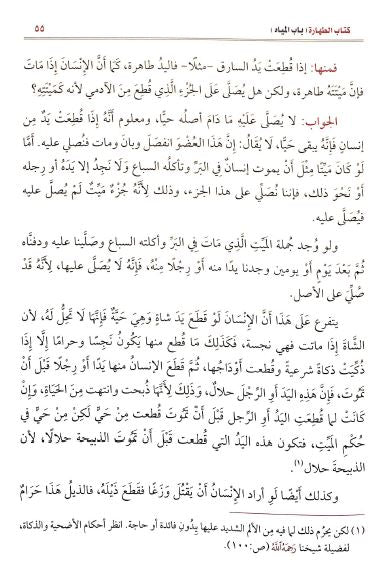 كتاب الطهارة (باب المياه) ٥٥
فمنها: إذا قُطِعَتْ يَدُ السارق -مثلًا- فاليدُ طاهرة، كَمَا أَنَّ الإِنْسَانَ إِذَا مَاتَ
فإنَّ مَيْتَتَهُ طاهرة، ولكن هل يُصَلَّى عَلَى الجُزْءِ الَّذِي قُطِعَ مِنَ الآدمي لأنه كَمَيْتَتِهِ؟
الجواب: لا يُصَلَّى عَلَيْهِ مَا دَامَ أصلُه حيًّا، ومعلوم أَنَّهُ إِذَا قُطِعَتْ يَدٌ مِن
إنسانٍ فَإِنَّهُ يبقى حَيًّا، لَا يُقَالُ: إِنَّ هَذَا العُضْوَ انفصَلَ وبانَ ومات فنُصلي عليه. أَمَّا
لَوْ كَانَ مَيتًا مِثْلَ أَنْ يموت إنسانٌ في البَرِّ وتأكلُه السباع وَلَا نَجِدُ إلا يدَه أو رجله
أَوْ نَحْوَ ذلك، فإننا نُصَلِّي عَلَى هذا الجزء، وذلك لِأَنَّهُ جُزْءُ مَيِّتٍ لَمْ يُصَلَّ عليه
فيُصَلَّى عليه.
ولو وُجد جُملة المَيِّتِ الَّذِي مَاتَ فِي البَرِّ وأكلته السباع وصَلَّينا عليه ودفنَّاه
ثُمَّ بَعْدَ يَوْمٍ أو يومين وجدنا يدًا منه أَوْ رِجْلًا مِنْهُ، فَإِنَّهُ لَا يُصَلَّى عليها، لِأَنَّهُ قَدْ
صُلِّيَ عَلَى الأصل.
يتفرع عَلَى هَذَا أَنَّ الإِنْسَانَ لَوْ قَطَعَ يَدَ شاةٍ وَهِيَ حَيَّةٌ فَإِنَّهَا لَا تَحِلُّ لَهُ، لأن
الشَّاةَ إِذَا ماتت فهي نجسة، فَكَذَلِكَ مَا قُطِع منها يَكُونُ نَجِسًا وحرامًا إِلَّا إِذَا
ذُكِّيَتْ ذكاةً شرعيةً وقُطعت أَوْدَاجُها، ثُمَّ قَطَعَ الإنسانُ منها يدًا أَوْ رِجْلًا قَبْلَ أَنْ
تَمُوتَ، فَإِنَّ هَذِهِ اليَدَ أو الرِّجْلَ حلال، وَذَلِكَ لِأَنَّهَا ذُبحت وانتهت مِنَ الحَيَاةِ، وَإِنْ
كَانَتْ لما قُطِعَتِ اليَدُ أو الرِّجل قَبْلَ أَنْ تَمُوتَ قُطعت مِنْ حَيٍّ لَكِنْ مِنْ حَيٍّ فِي
حُكْمِ المَيِّتِ، فتكون هذه اليَدُ التي قُطعت قَبْلَ أَنْ تَمُوتَ الذبيحة حلالًا، لأن
الذبيحةَ حلال(١).
وكذلك أَيْضًا لَو أراد الإِنْسَانُ أَنْ يَقْتُلَ وَزَغًا فقَطَعَ ذَيْلَهُ، فالذيلُ هَذَا حَرَامٌ
(١) لكن يحرُم ذلك لما فيه مِنَ الألم الشديد عليها بِدُونِ فائدة أو حاجة. انظر أحكام الأضحية والذكاة،
لفضيلة شيخنا رَحِمَهُ اللَّهُ (ص:١٠٠).